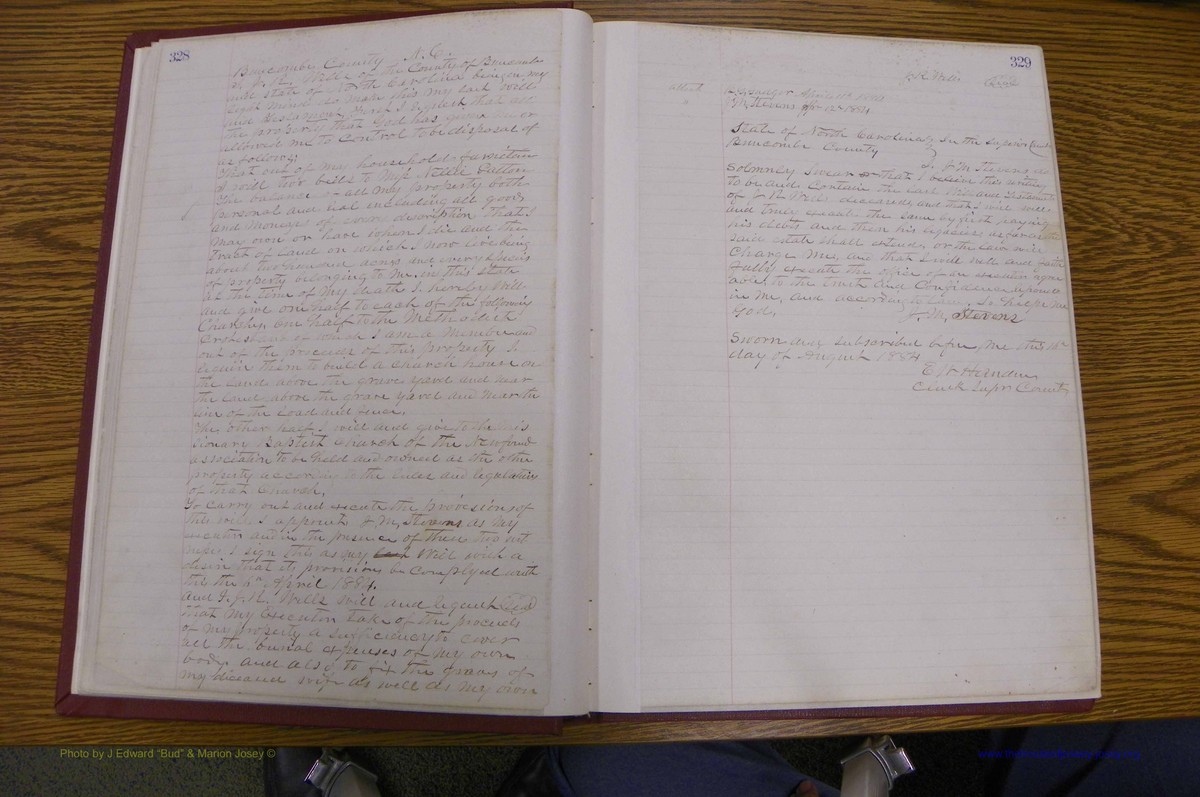 328
Buncombe County N.C.
I, J. R. Wells of the County of Buncombe
and state of North Carolina being in my
right mind do make this my last will
and Testament, first I request that all
the property that God has given me or
allowed me to control to be disposed of
as follows;
That out of my household furniture
I will two beds to Nellie Sutton
the balance all my property both
personal and real including all goods
and moneys of every description that I
may own or have when I die and the
tract of Land on which I now live being
about two hundred acres and every species
of property belonging to me in this state
at the time of my death I hereby Will
and give one half to each of the following
Churches, one half to the Methodist
Protestant of which I am a member and
out of the proceeds of this property I
them to build a church house on
the land above the grave yard and near
the land above the grave yard and near the
line of the Load and fence.
The other half I will and give to the Mis
sionary Baptist Church of the Newfound
association to be held and owned as the other
property according to the rules and regulations
of that church.
To carry out and execute the provisions of
this will I appoint J. M. Stevens as my
executor and in the presence of these two wit
nesses I sign this as my last Will with a
desire that its provisions be complyed with
this the 6th April 1884.
and I, J. R. Wells will and bequeath
that my Executor take of the proceeds
of my property a sufficiency to cover
all the burial expenses of my own
body and also to fix the graves of
my deceased wife as well as my own
329
J. R. Wells Seal
attest
J. M. Stevens 1884
State of North Carolina In the Superior Court
Buncombe County
I, J. M. Stevens do
Solemnly Swear that I believe this writing
to be and contain the last Will and Testament
of J. R. Wells deceased, and that I will well
and truly execute the same by first paying
his debts and then his legacies as far as the
said estate shall extend, or the law will
Charge me, and that I will well and faith
fully execute the office of an executor agree
able to the trust and Confidence reposed
in me, and according to law, So help me
God.
J. M. Stevens
Sworn and subscribed before me this
day of August 1884
E. W. Herndon
Clerk Supr Court
Photo by J Edward "Bud" & Marion Josey ©